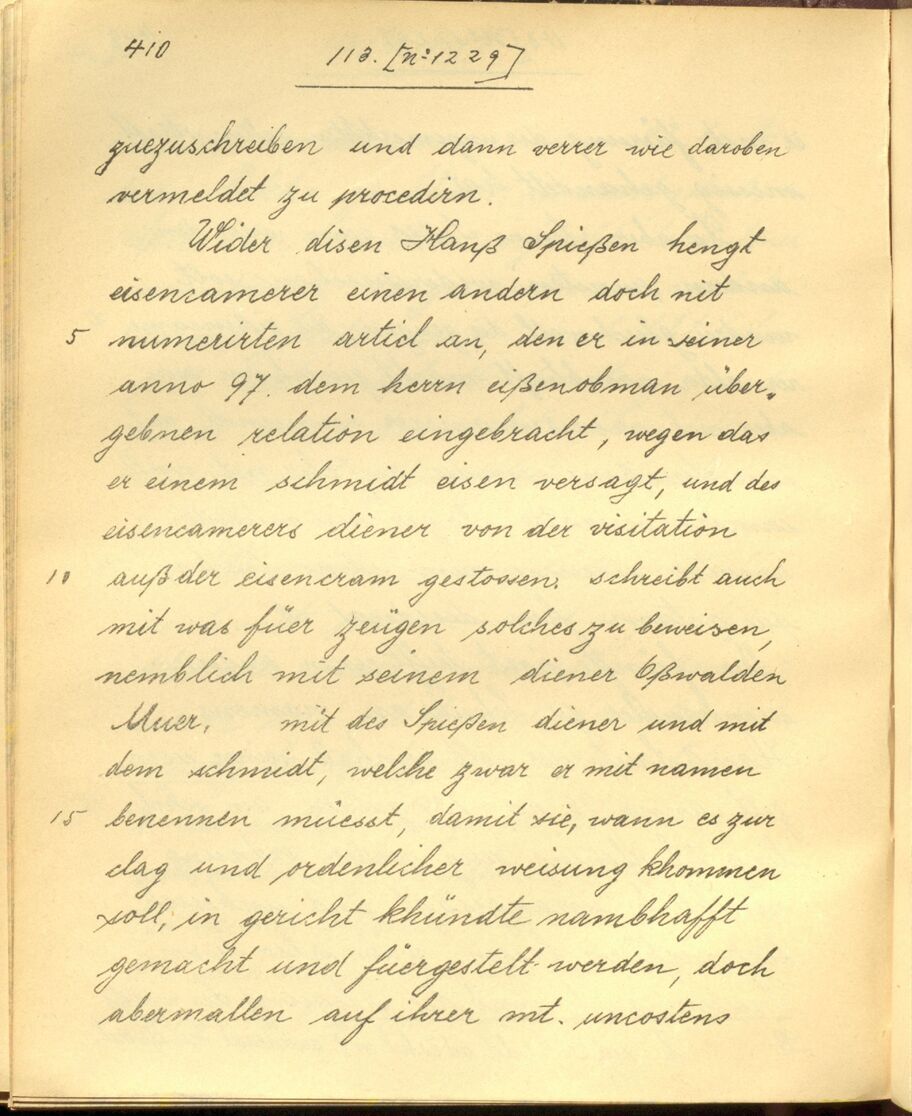 410
113. [n: 1229]
zuezuschreiben und dann verrer wie daroben
vermeldet zu procedirn.
Wider disen Hanß Spießen hengt
eisencamerer einen andern doch nit
5 numerirten articl an, den er in seiner
anno 97. dem herrn eißenobman über„
gebnen relation eingebracht, wegen das
er einem schmidt eisen versagt, und des
eisencamerers diener von der visitation
10 auß der eisencram gestossen. schreibt auch
mit was füer zeügen solches zu beweisen,
nemblich mit seinem diener Oßwalden
Muer, mit des Spießen diener und mit
dem schmidt, welche zwar er mit namen
15 benennen müesst, damit sie, wann es zur
clag und ordenlicher weisung khommen
soll, in gericht khündte nambhafft
gemacht und füergestelt werden, doch
abermallen auf ihrer mt. uncostens